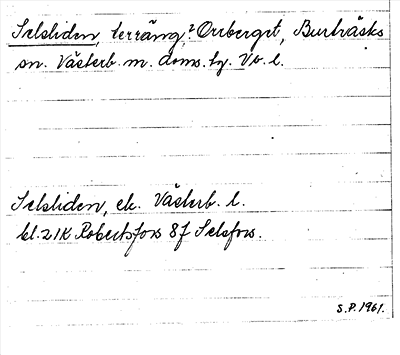 Selsliden, terräng, Orrberget, Burträsks
sn. Västerb. m. doms. hg. Vb. l.
Selsliden, ek. Västerb. l.
bl. 21K Robertsfors 8f Selsfors.
S.P. 1961.